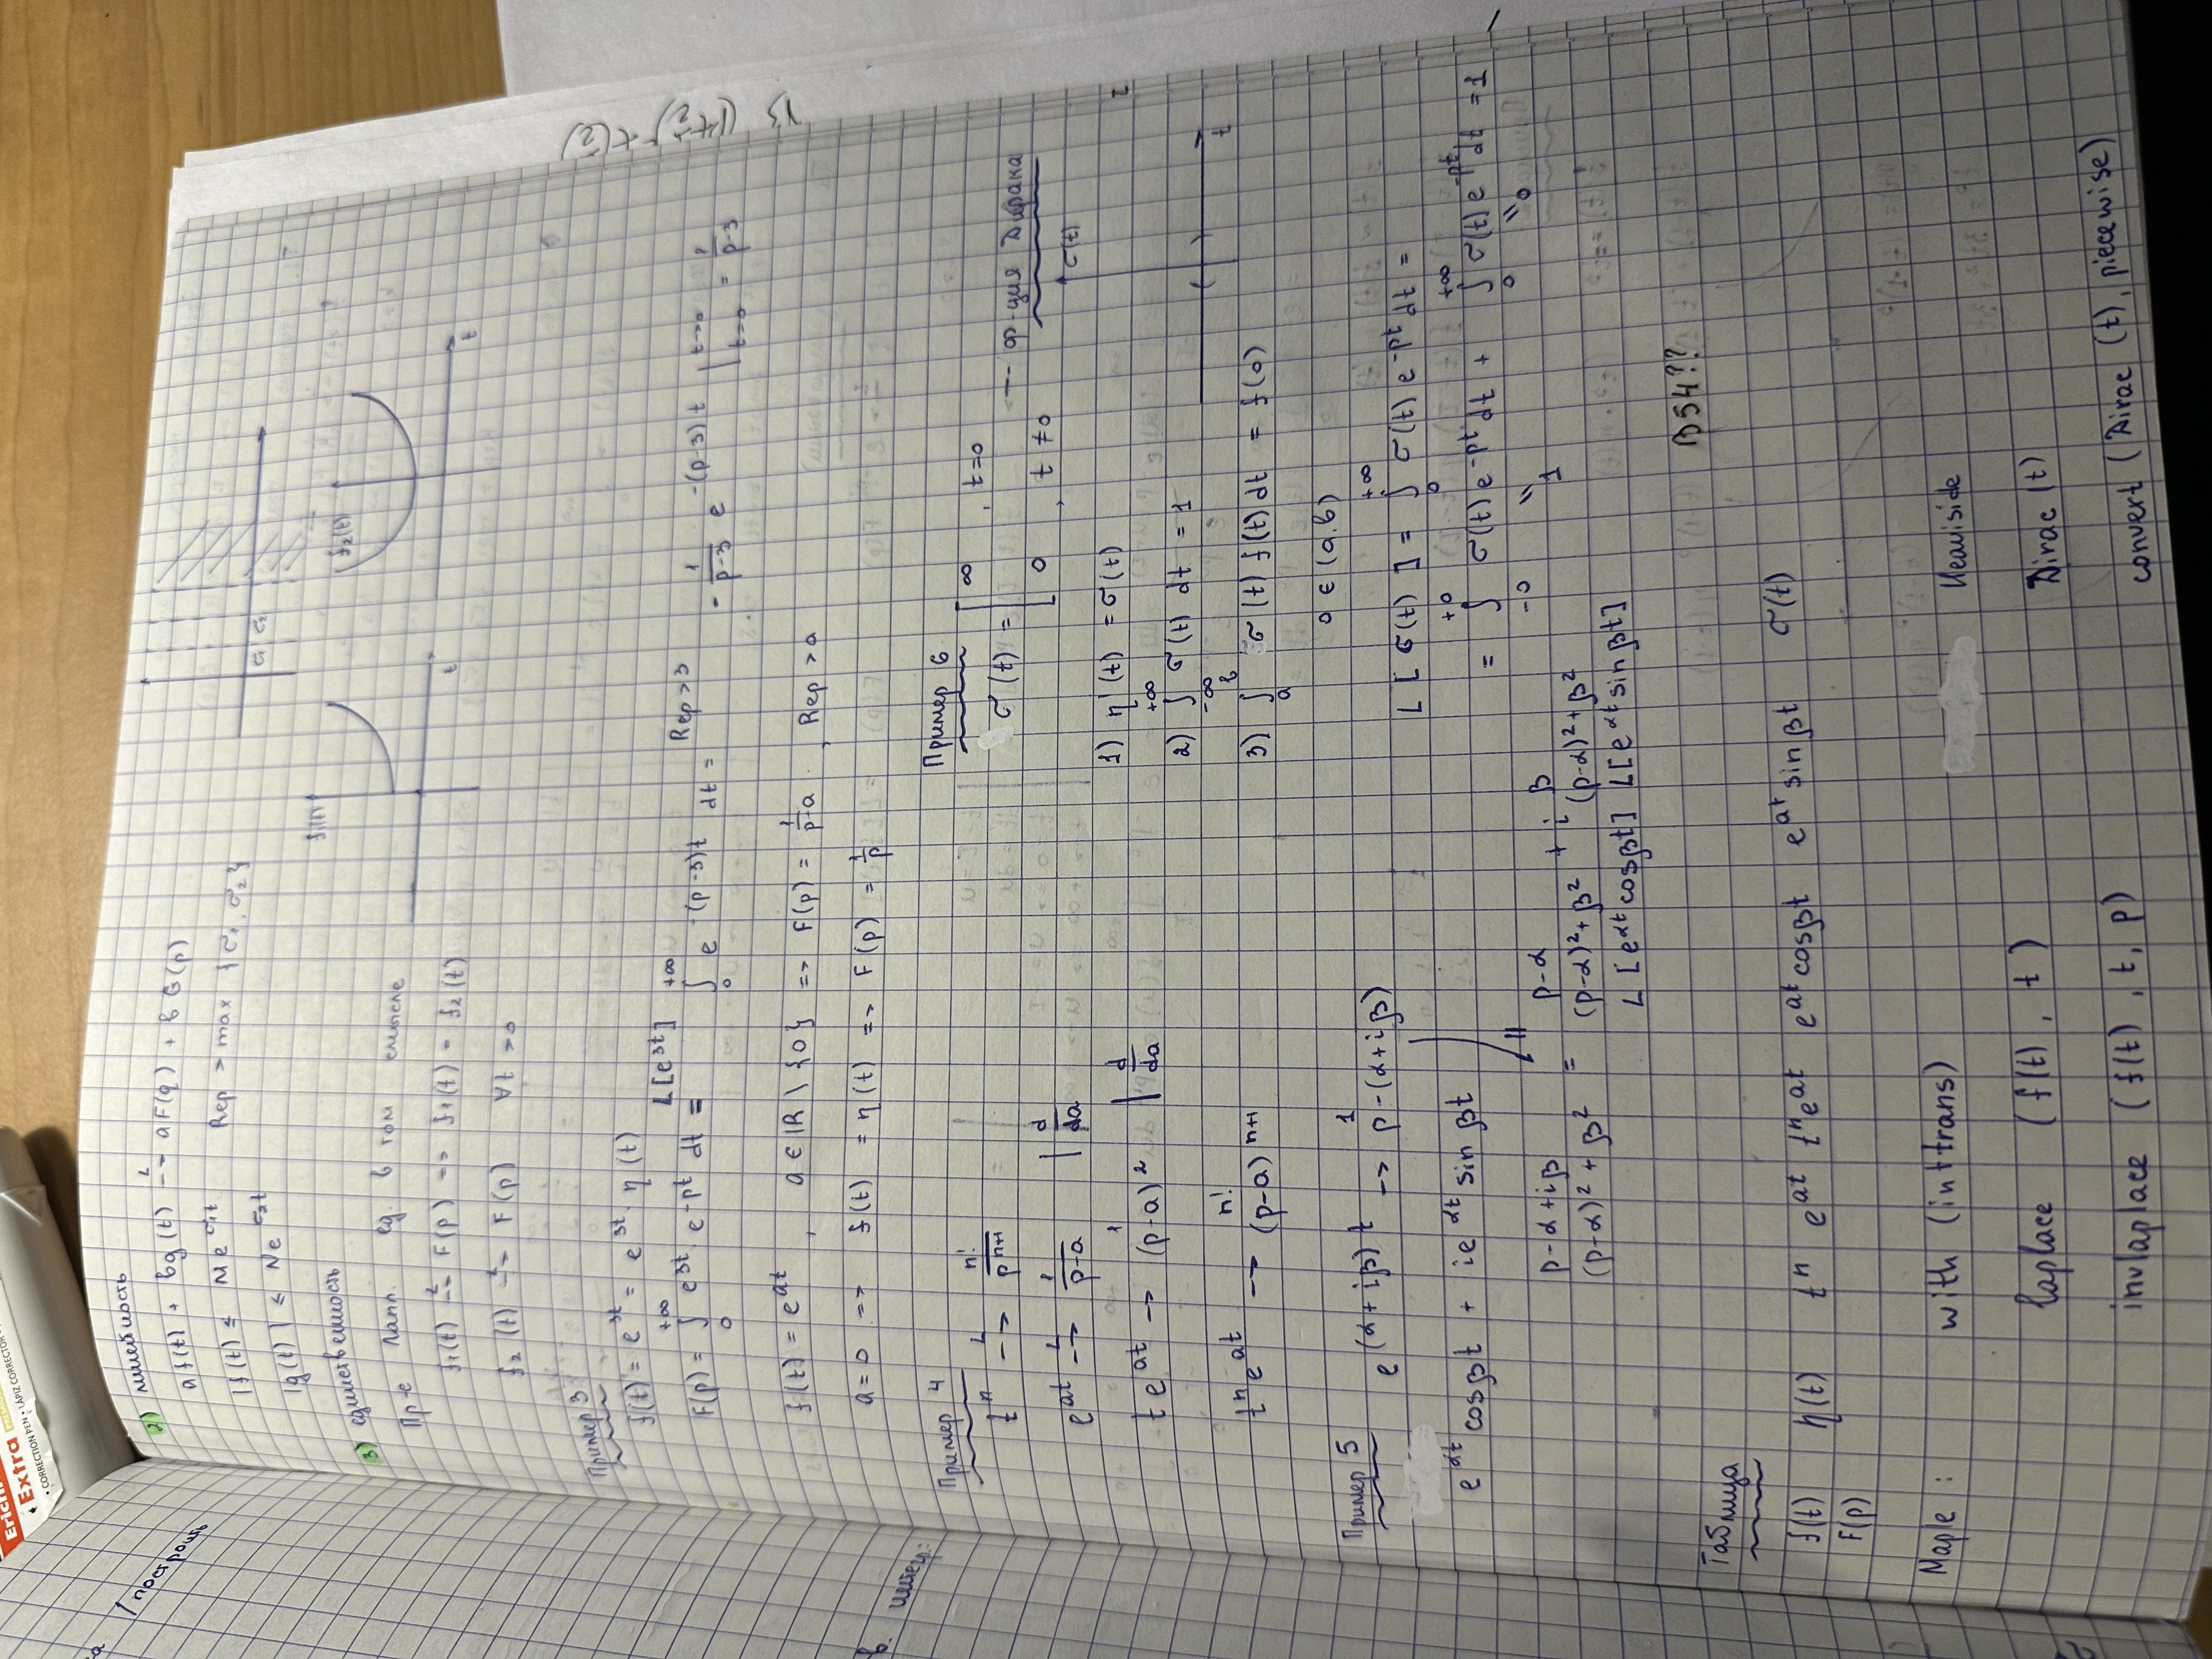 Extra
• CORRECTION PEN • LÁPIZ CORRECTOR
построить
2) линейность
a f(t) + bg(t) --L-- a F(q) + b G(p)
|f(t) ≤ Me^σ₁t    Rep > max {σ₁, σ₂}
|g(t)| ≤ Ne^σ₂t
σ₁ σ₂
3) единственность
Пр-е Лапл. ед. в том смысле
f₁(t) --L-- F(p) => f₁(t) = f₂(t)
f₂(t) --L-- F(p)    ∀t >0
f₁(t)
t
f₂(t)
t
Пример 3
f(t) = e^3t = e^3t · η(t)
L[e^3t]
F(p) = ∫₀^+∞ e^3t e^-pt dt = ∫₀^+∞ e^-(p-3)t dt = Rep>3 - 1/(p-3) e^-(p-3)t | t->∞ t=0 = 1/(p-3)
f(t) = e^at , a ∈ IR \ {0} => F(p) = 1/(p-a) , Rep > a
a=0 => f(t) = η(t) => F(p) = 1/p
в. интегр:
Пример 4
t^n --L--> n!/p^(n+1)
e^at --L--> 1/(p-a)   | d/da
te^at --> 1/(p-a)²   | d/da
t^n e^at --> n!/(p-a)^(n+1)
Пример 5
e^(α+iβ)t --> 1/(p-(α+iβ))
e^αt cosβt + ie^αt sinβt
(p-α+iβ)/((p-α)²+β²) = (p-α)/((p-α)²+β²) + i β/((p-α)²+β²)
L [e^αt cosβt]  L[e^αt sinβt]
Пример 6
σ(t) = [ ∞ , t=0
0 , t ≠0
-- ф-ция Дирака
σ(t)
t
1) η'(t) = σ(t)
2) ∫_-∞^+∞ σ(t) dt = 1
3) ∫_a^b σ(t) f(t) dt = f(0)
0 ∈ (a,b)
L [ σ(t) ] = ∫₀^+∞ σ(t) e^-pt dt =
= ∫_-0^+0 σ(t) e^-pt dt + ∫₀^+∞ σ(t) e^-pt dt = 1
" 1    " 0
B54??
Таблица
f(t)  η(t)  t^n  e^at  t^n e^at  e^at cosβt  e^at sinβt  σ(t)
F(p)
Maple :  with (inttrans)  Heaviside
laplace (f(t), t)  Dirac (t)
invlaplace (f(t), t, p)  convert (Dirac (t), piecewise)